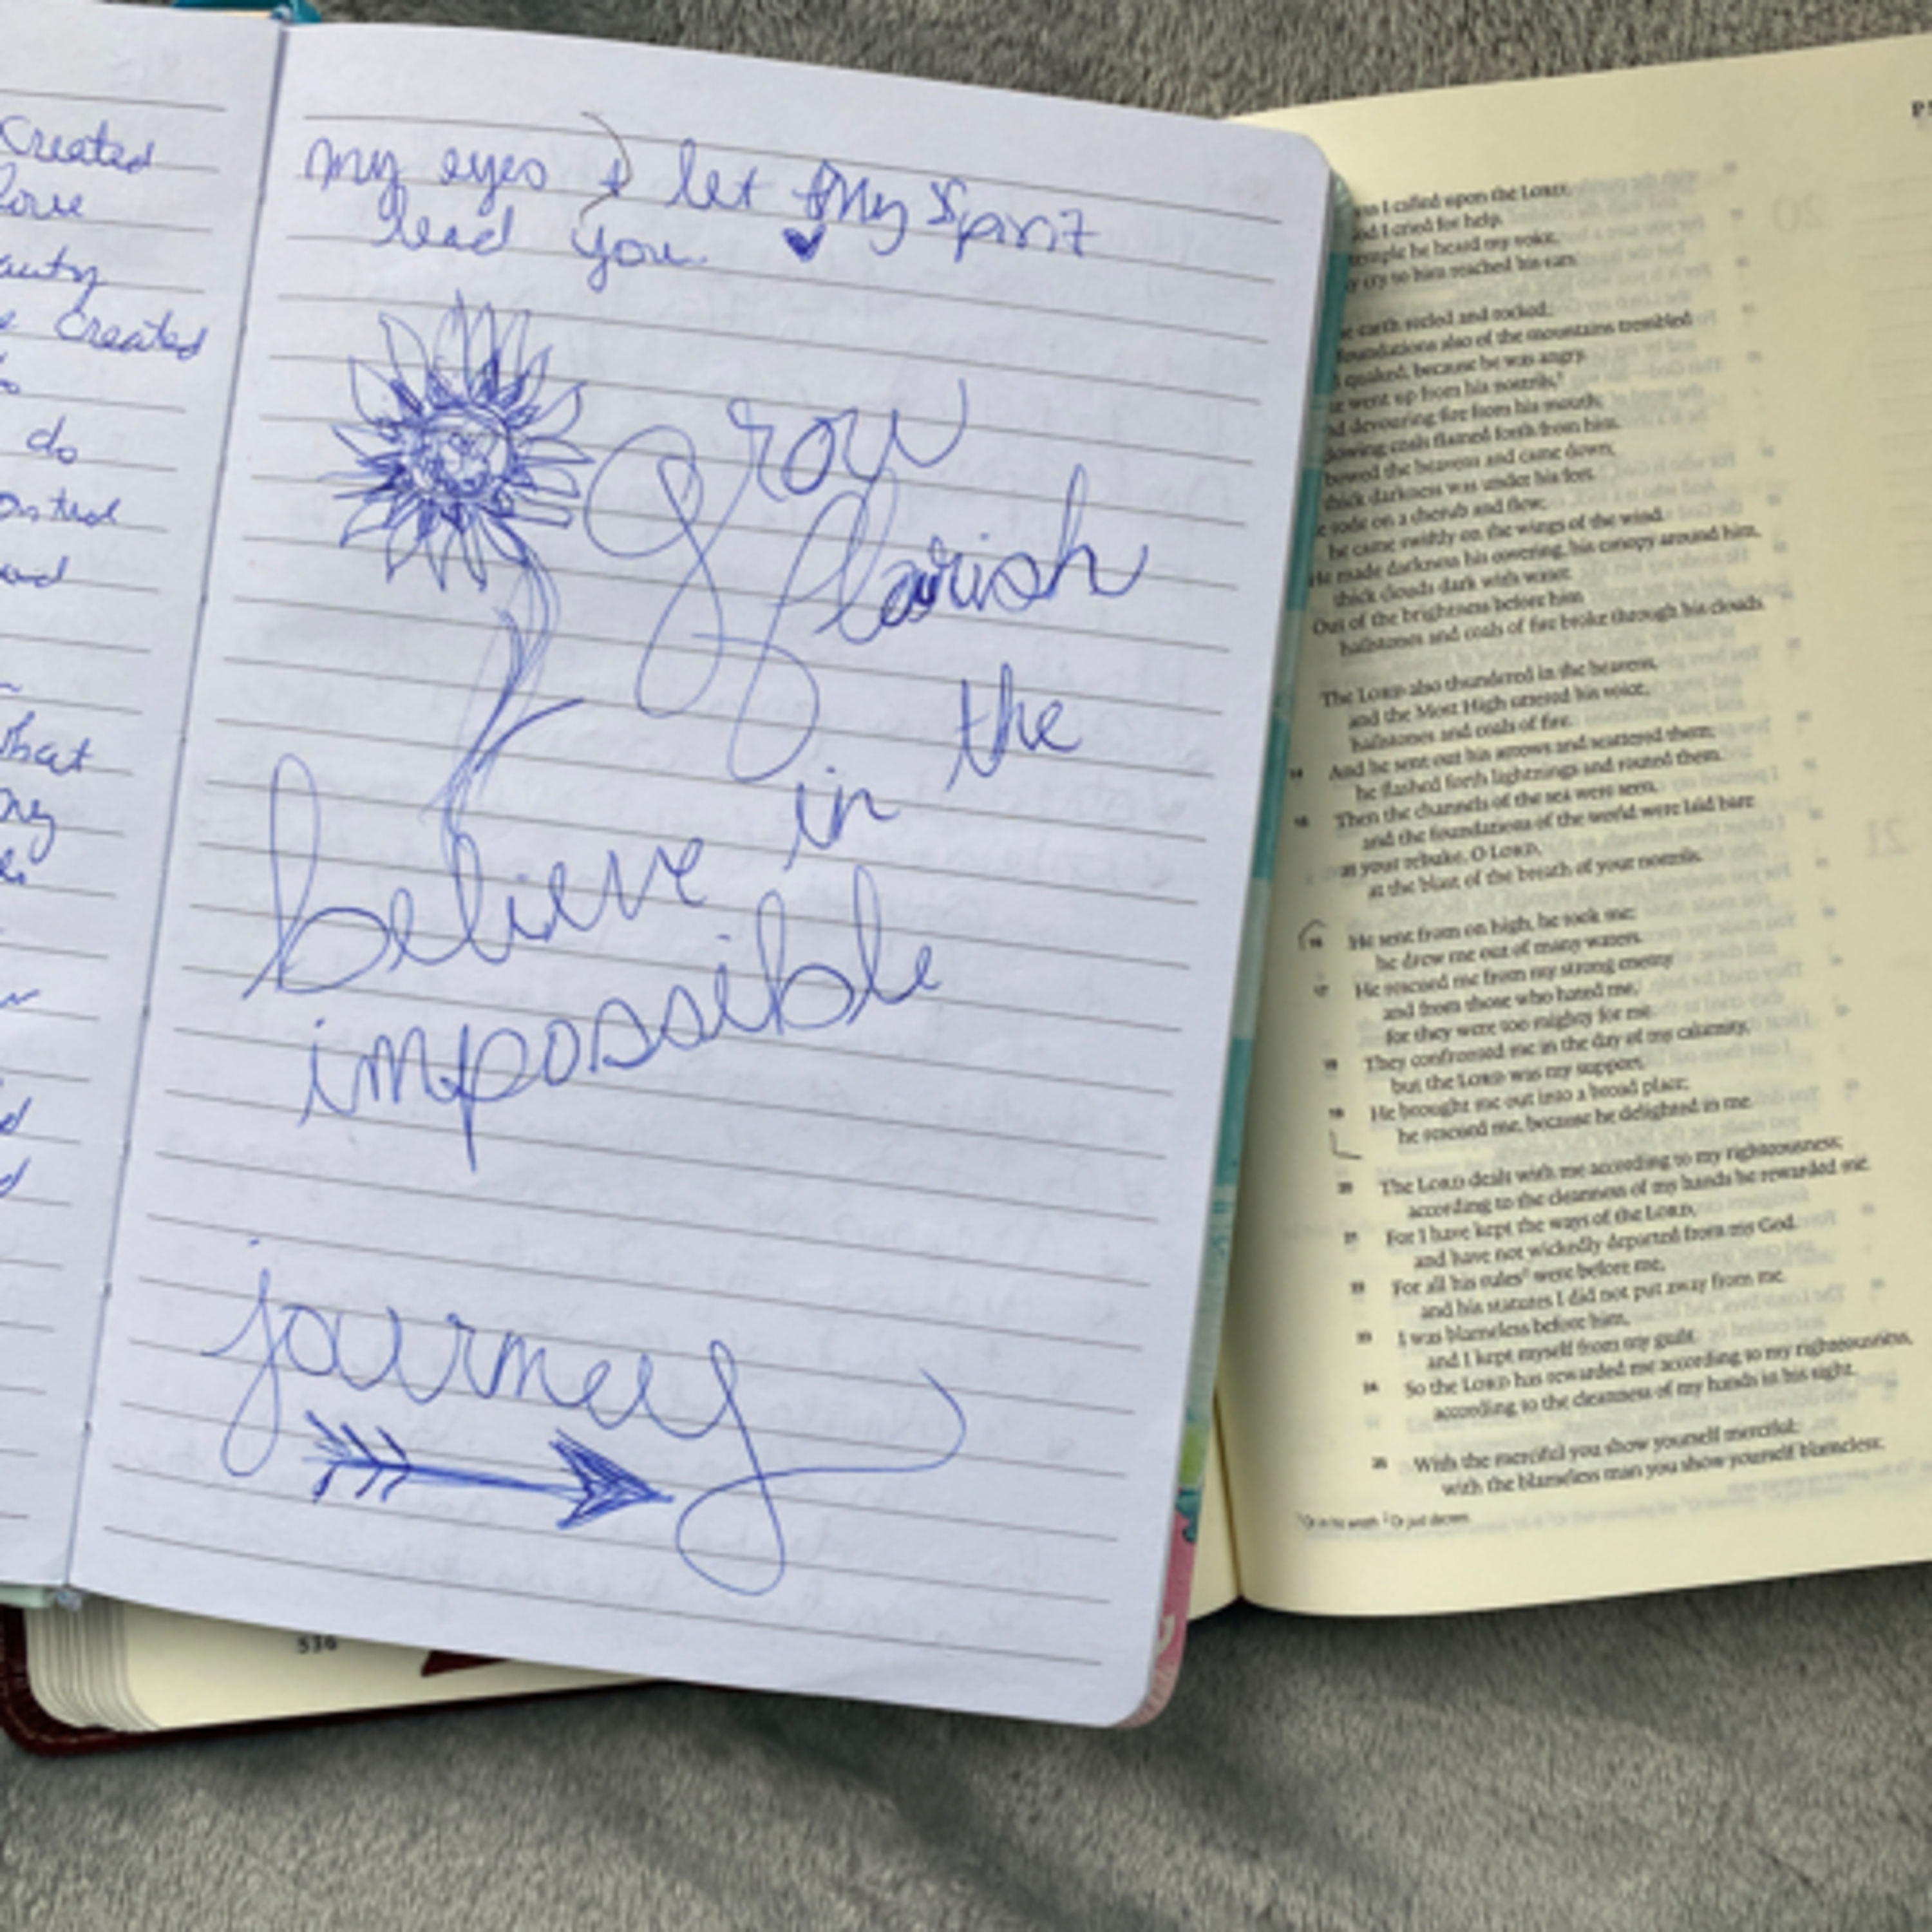 Created
love
created
do
what
my
my eyes & let My Spirit
lead you.
Grow
flourish
the
in
believe
impossible
journey
536
I called upon the LORD,
I cried for help.
he heard my voice,
cry to him reached his ears.
earth reeled and rocked;
foundations also of the mountains trembled
quaked, because he was angry.
went up from his nostrils,
devouring fire from his mouth;
glowing coals flamed forth from him.
bowed the heavens and came down;
thick darkness was under his feet.
rode on a cherub and flew;
he came swiftly on the wings of the wind.
He made darkness his covering, his canopy around him,
thick clouds dark with water.
Out of the brightness before him
hailstones and coals of fire broke through his clouds.
The LORD also thundered in the heavens,
and the Most High uttered his voice,
hailstones and coals of fire.
14 And he sent out his arrows and scattered them;
he flashed forth lightnings and routed them.
15 Then the channels of the sea were seen,
and the foundations of the world were laid bare
at your rebuke, O LORD,
at the blast of the breath of your nostrils.
16 He sent from on high, he took me;
he drew me out of many waters.
17 He rescued me from my strong enemy
and from those who hated me,
for they were too mighty for me.
18 They confronted me in the day of my calamity,
but the LORD was my support.
19 He brought me out into a broad place;
he rescued me, because he delighted in me.
20 The LORD dealt with me according to my righteousness;
according to the cleanness of my hands he rewarded me.
21 For I have kept the ways of the LORD,
and have not wickedly departed from my God.
22 For all his rules² were before me,
and his statutes I did not put away from me.
23 I was blameless before him,
and I kept myself from my guilt.
24 So the LORD has rewarded me according to my righteousness,
according to the cleanness of my hands in his sight.
25 With the merciful you show yourself merciful;
with the blameless man you show yourself blameless;
¹ Or in his wrath ² Or just decrees